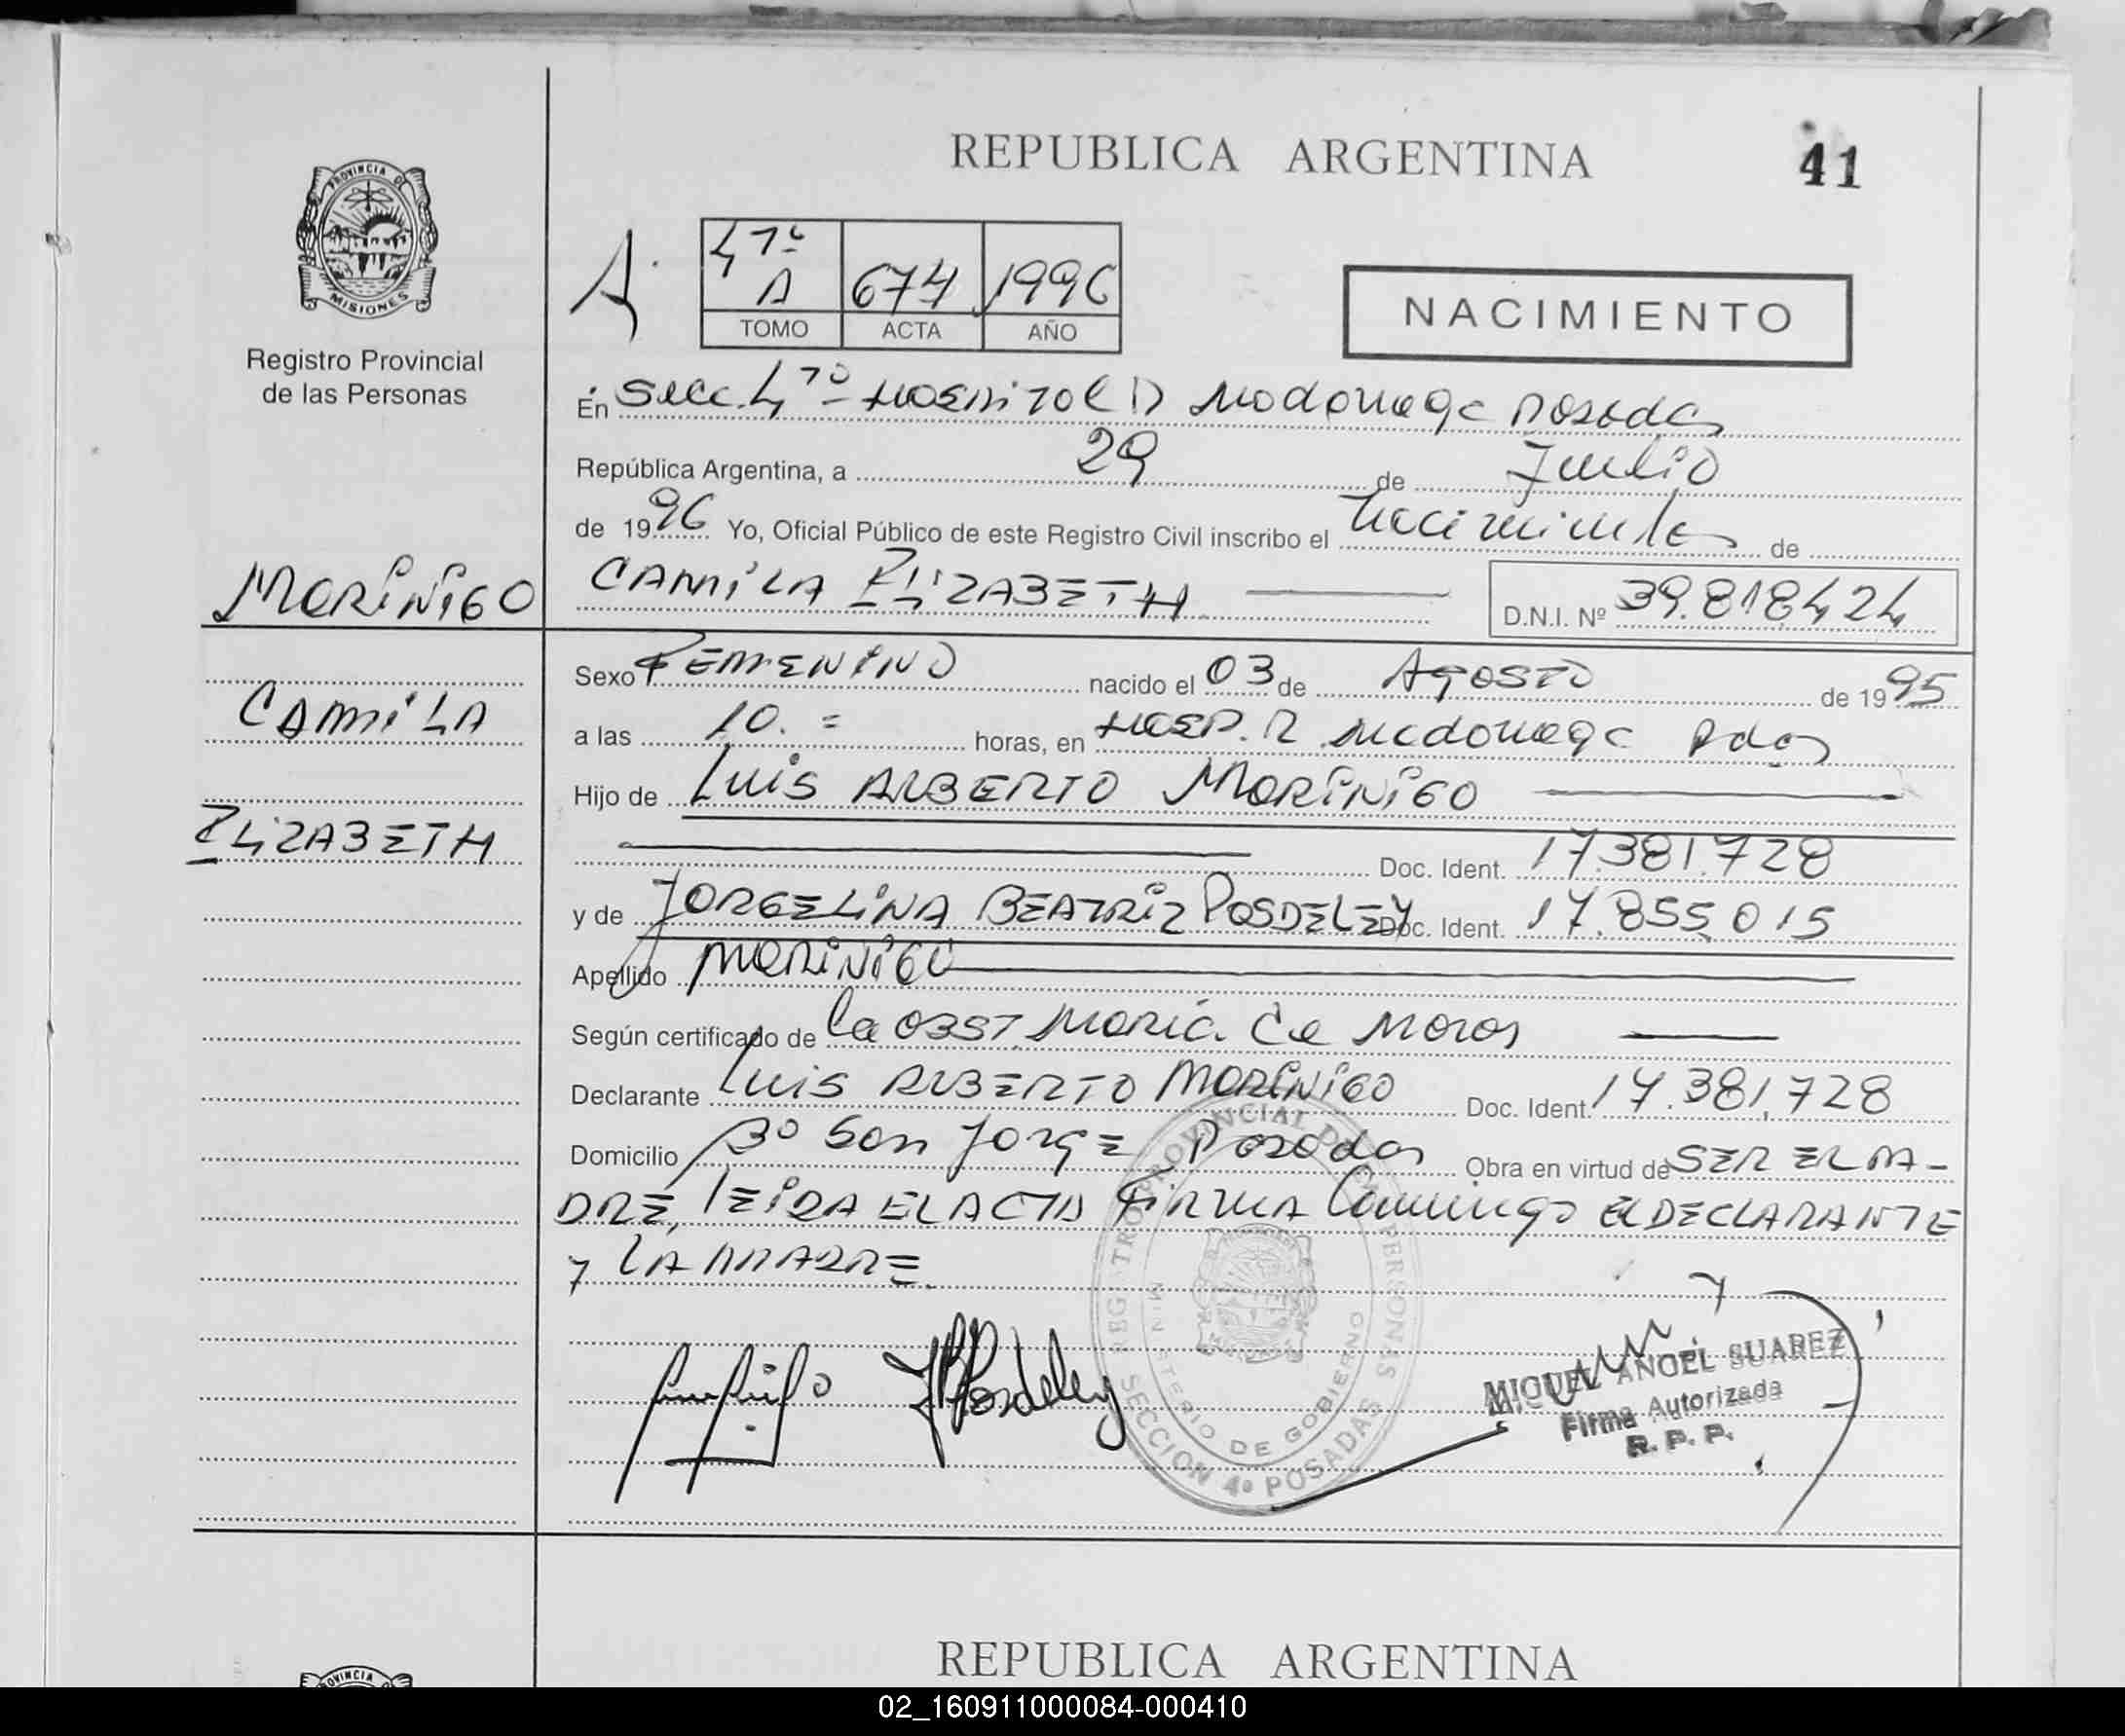 REPUBLICA ARGENTINA
41
PROVINCIA DE
MISIONES
Registro Provincial
de las Personas
A.
4ta A 674 1996
TOMO ACTA AÑO
NACIMIENTO
En Secc. 4ta Hospitol D Madariaga Posadas
República Argentina, a 29 de Julio
de 1996 Yo, Oficial Público de este Registro Civil inscribo el nacimiento de
MORINIGO
CAMILA ELIZABETH D.N.I. Nº 39.818.424
Sexo FEMENINO nacido el 03 de AGOSTO de 1995
CAMILA
a las 10. = horas, en HOSP. R Madariaga Pdas
Hijo de LUIS ALBERTO MORINIGO
ELIZABETH
Doc. Ident. 17.381.728
y de JORGELINA BEATRIZ POSDELEY Doc. Ident. 17.855.015
Apellido MORINIGO
Según certificado de la OBST. Maria de
Declarante LUIS ALBERTO MORINIGO Doc. Ident. 17.381.728
Domicilio Bº San Jorge Posadas Obra en virtud de SER EL PA-
DRE, LEIDA EL ACTA FIRMA Conmigo EL DECLARANTE
y LA MADRE.
JBPosdeley
REGISTRO PROVINCIAL DE LAS PERSONAS
MINISTERIO DE GOBIERNO
SECCION 4ª POSADAS
MIGUEL ANGEL SUAREZ
Firma Autorizada
R. P. P.
REPUBLICA ARGENTINA
PROVINCIA
02_160911000084-000410